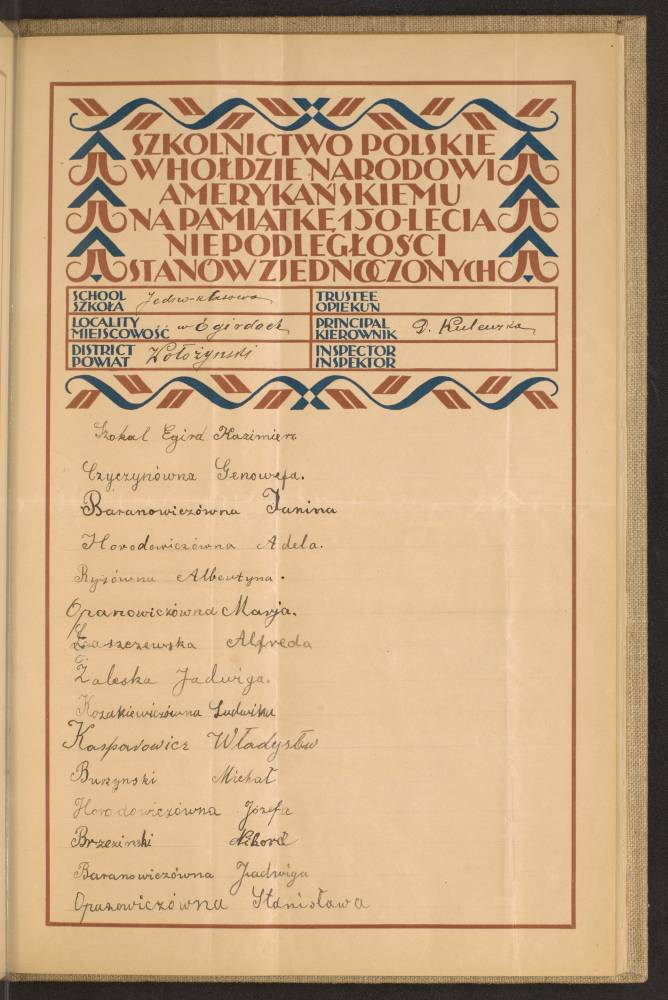 SZKOLNICTWO POLSKIE
W HOŁDZIE NARODOWI
AMERYKAŃSKIEMU
NA PAMIĄTKĘ 150-LECIA
NIEPODLEGŁOŚCI
STANÓW ZJEDNOCZONYCH
SCHOOL
SZKOŁA Jedno-klasowa
TRUSTEE
OPIEKUN
LOCALITY
MIEJSCOWOŚĆ w Egirdach
PRINCIPAL
KIEROWNIK
DISTRICT
POWIAT Wołożynski
INSPECTOR
INSPEKTOR
Szokal Egird Kazimierz
Czyczynówna Genowefa.
Baranowiczówna Janina
Horodowiczówna Adela.
Ryżówna Albertyna.
Opanowiczówna Marja.
Łaszczewska Alfreda
Żaleska Jadwiga.
Kozakiewiczówna Ludwika
Kasparowicz Władysław
Burzynski Michał
Horodowiczówna Józefa
Brzezinski
Baranowiczówna Jadwiga
Opanowiczówna Stanisława